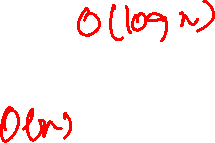 O(log n)
O(n)